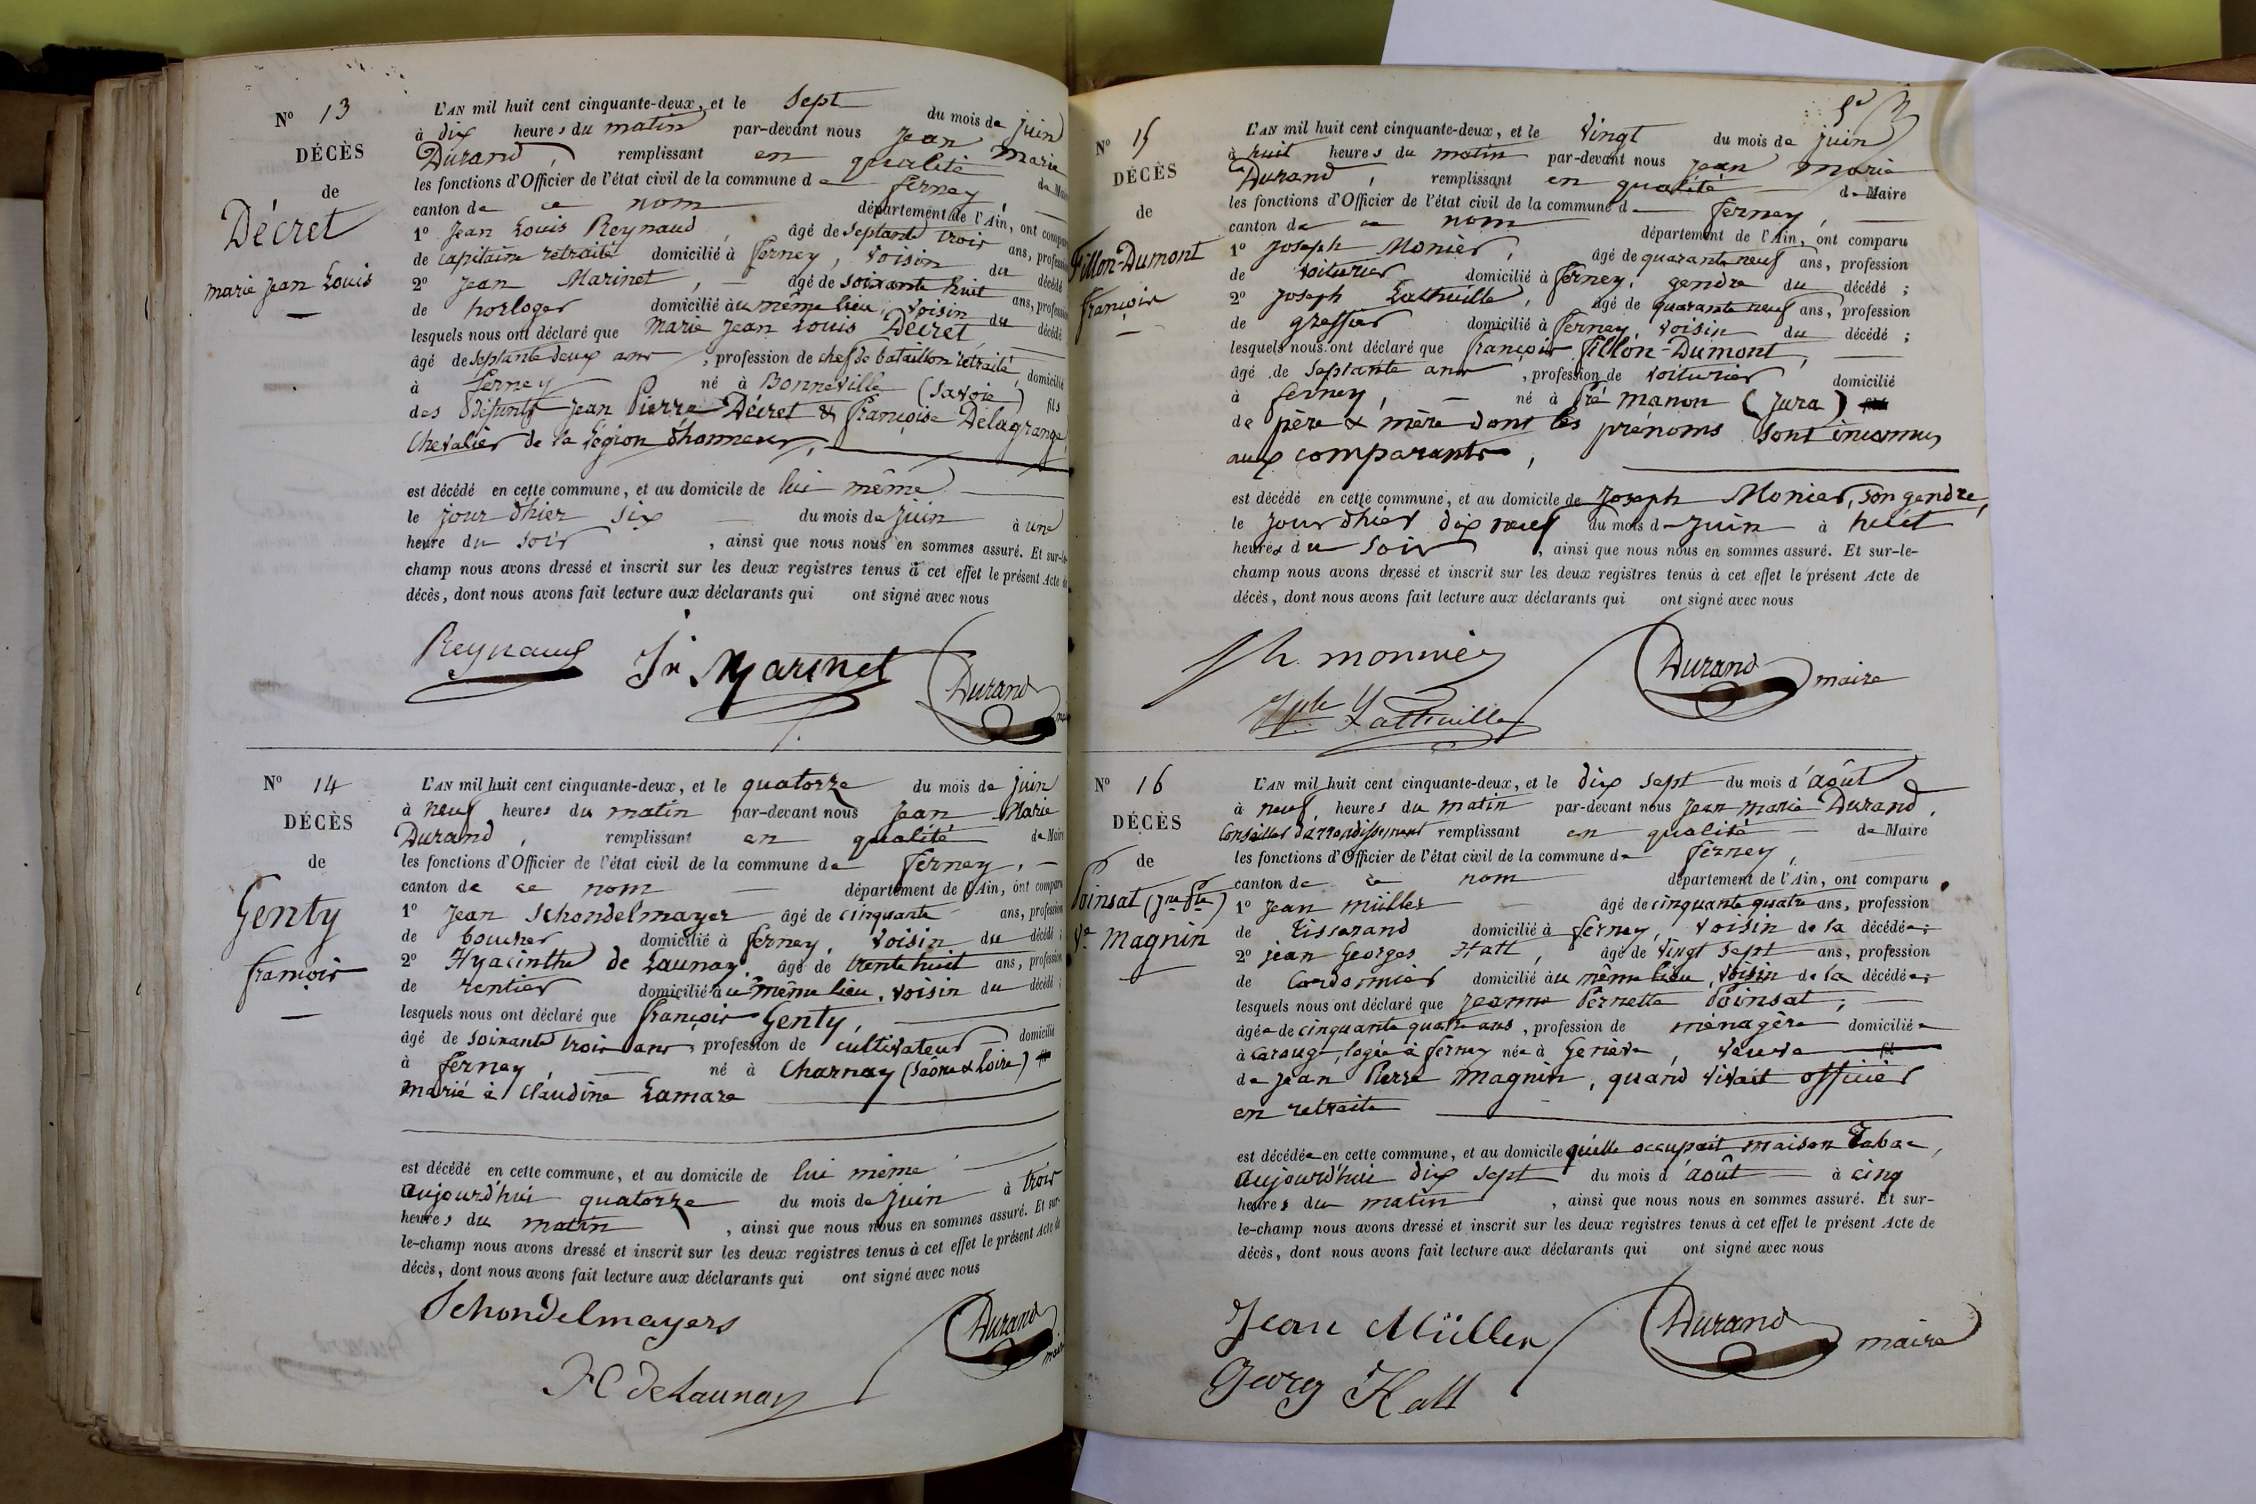 N° 13
DÉCÈS
de
Décret
marie Jean Louis
L'AN mil huit cent cinquante-deux, et le sept du mois de juin
à dix heures du matin par-devant nous Jean Marie
Durand, remplissant en qualité de Maire
les fonctions d'Officier de l'état civil de la commune de ferney,
canton de ce nom département de l'Ain, ont comparu
1° Jean Louis Reynaud, âgé de septante trois ans, profession
de capitaine retraité domicilié à ferney, voisin du décédé
2° Jean Marinet, âgé de soixante huit ans, profession
de horloger domicilié au même lieu, voisin du décédé
lesquels nous ont déclaré que Marie Jean Louis Décret
âgé de septante deux ans, profession de chef de bataillon retraité, domicilié
à ferney né à Bonneville (Savoie) fils
des défunts Jean Pierre Décret & françoise Delagrange,
Chevalier de la Légion d'honneur,
est décédé en cette commune, et au domicile de lui même
le jour d'hier six du mois de juin à une
heure du soir, ainsi que nous nous en sommes assuré. Et sur-le-
champ nous avons dressé et inscrit sur les deux registres tenus à cet effet le présent Acte de
décès, dont nous avons fait lecture aux déclarants qui ont signé avec nous
Reynaud Jn Marinet Durand
N° 14
DÉCÈS
de
Genty
françois
L'AN mil huit cent cinquante-deux, et le quatorze du mois de juin
à neuf heures du matin par-devant nous Jean Marie
Durand, remplissant en qualité de Maire
les fonctions d'Officier de l'état civil de la commune de ferney,
canton de ce nom département de l'Ain, ont comparu
1° Jean Schondelmayer âgé de cinquante ans, profession
de boucher domicilié à ferney, voisin du décédé;
2° Hyacinthe de Launay, âgé de trente huit ans, profession
de rentier domicilié au même lieu, voisin du décédé;
lesquels nous ont déclaré que françois Genty,
âgé de soixante trois ans, profession de cultivateur domicilié
à ferney, né à Charnay (Saône & Loire) fils
marié à Claudine Lamare
est décédé en cette commune, et au domicile de lui même
aujourd'hui quatorze du mois de juin à trois
heures du matin, ainsi que nous nous en sommes assuré. Et sur-
le-champ nous avons dressé et inscrit sur les deux registres tenus à cet effet le présent Acte de
décès, dont nous avons fait lecture aux déclarants qui ont signé avec nous
Schondelmayers
H deLaunay
Durand maire
N° 15
DÉCÈS
de
Fillon-Dumont
françois
L'AN mil huit cent cinquante-deux, et le vingt du mois de juin
à huit heures du matin par-devant nous Jean Marie
Durand, remplissant en qualité de Maire
les fonctions d'Officier de l'état civil de la commune de ferney,
canton de ce nom département de l'Ain, ont comparu
1° Joseph Monier, âgé de quarante neuf ans, profession
de voiturier domicilié à ferney, gendre du décédé;
2° Joseph Lathuille, âgé de quarante neuf ans, profession
de greffier domicilié à ferney, voisin du décédé;
lesquels nous ont déclaré que françois Fillon-Dumont,
âgé de septante ans, profession de voiturier domicilié
à ferney, né à Pré manon (Jura) fils
de père & mère dont les prénoms sont inconnus
aux comparants,
est décédé en cette commune, et au domicile de Joseph Monier, son gendre,
le jour d'hier dix neuf du mois de juin à huit
heures du soir, ainsi que nous nous en sommes assuré. Et sur-le-
champ nous avons dressé et inscrit sur les deux registres tenus à cet effet le présent Acte de
décès, dont nous avons fait lecture aux déclarants qui ont signé avec nous
Jh. monnier
Jph Lathuille
Durand maire
N° 16
DÉCÈS
de
Poinsat (Jne Pte)
Ve Magnin
L'AN mil huit cent cinquante-deux, et le dix sept du mois d'août
à neuf heures du matin par-devant nous Jean Marie Durand,
Conseiller d'arrondissement remplissant en qualité de Maire
les fonctions d'Officier de l'état civil de la commune de ferney,
canton de ce nom département de l'Ain, ont comparu
1° Jean Müller âgé de cinquante quatre ans, profession
de Tisserand domicilié à ferney, voisin de la décédée;
2° jean Georges Hatt, âgé de vingt sept ans, profession
de Cordonnier domicilié au même lieu, voisin de la décédée;
lesquels nous ont déclaré que Jeanne Pernette Poinsat,
âgée de cinquante quatre ans, profession de ménagère domiciliée
à Carouge, logée à ferney née à Genève, veuve fil
de Jean Pierre Magnin, quand vivait officier
en retraite
est décédée en cette commune, et au domicile qu'elle occupait maison Tabac,
aujourd'hui dix sept du mois d'août à cinq
heures du matin, ainsi que nous nous en sommes assuré. Et sur-
le-champ nous avons dressé et inscrit sur les deux registres tenus à cet effet le présent Acte de
décès, dont nous avons fait lecture aux déclarants qui ont signé avec nous
Jean Müller
Georg Hatt
Durand maire